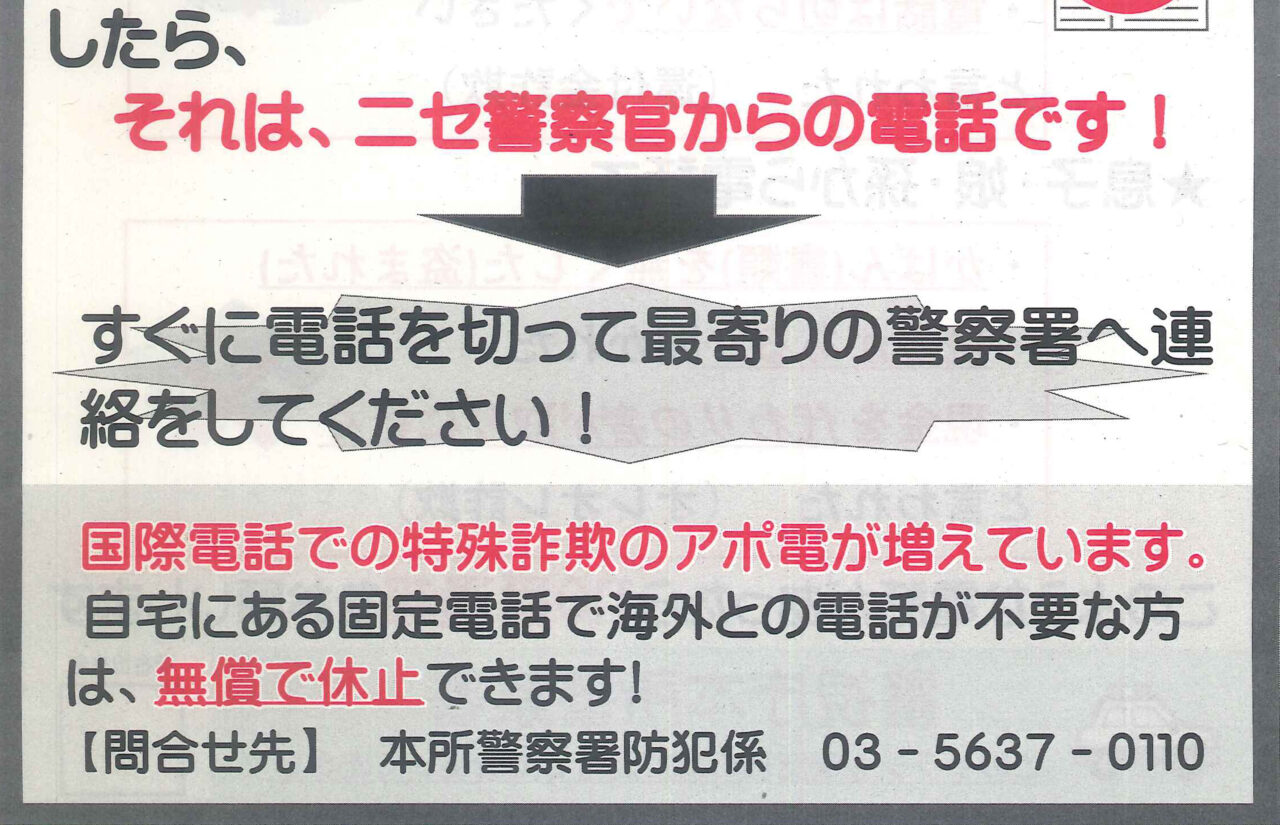 したら、
それは、ニセ警察官からの電話です！
すぐに電話を切って最寄りの警察署へ連
絡をしてください！
国際電話での特殊詐欺のアポ電が増えています。
自宅にある固定電話で海外との電話が不要な方
は、無償で休止できます!
【問合せ先】　本所警察署防犯係　03－5637－0110